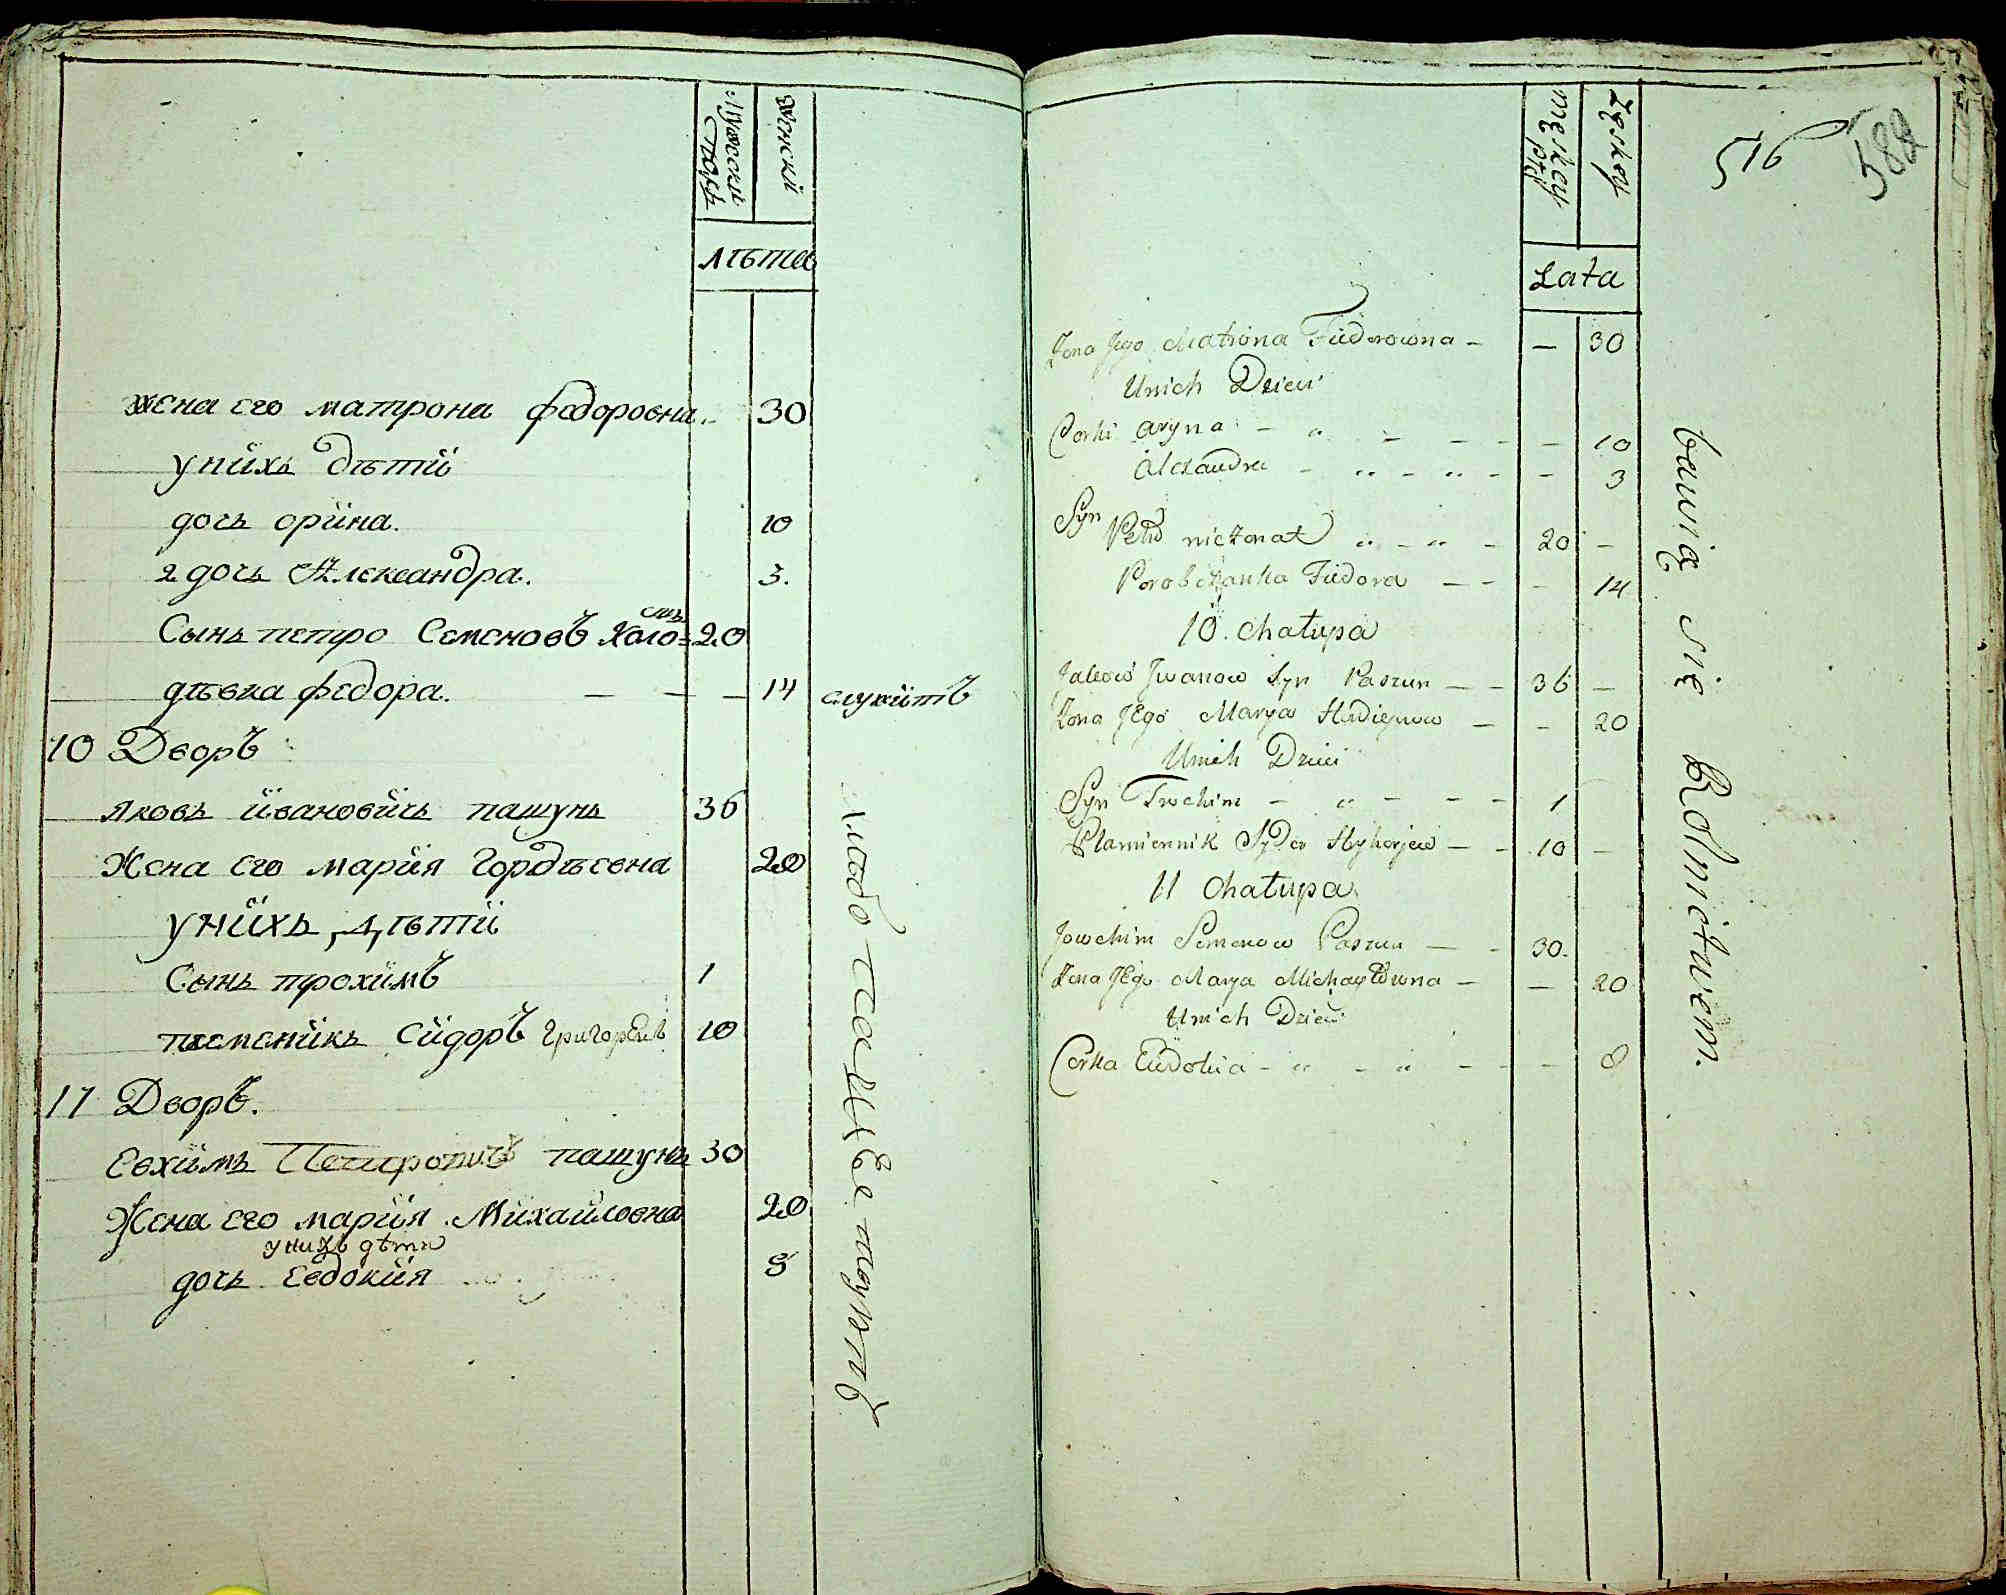 Мужеска полу
Женскй
лѣта
жена его матрона федоровна 30
у нихъ дѣти
дочь орина. 10
2 дочь Александра. 3.
Сынъ петро Семеновъ Холо=стъ 20
дѣвка федора. — — — 14 служитъ
10 Дворъ
яковъ ивановичь пашунъ 36
Жена Его мария Гордѣевна 20
у нихъ дѣти
Сынъ трохимъ 1
племеникъ Сидоръ Григорьевъ 10
11 Дворъ.
Евхимъ пашунъ 30
Жена его мария Михаиловна 20
у нихъ дѣти
дочь Евдокия 8
хлѣбо пашце
męskey płci
Żęskey
Lata
516
582
Żona Jego Matrona Fiüdorowna — — 30
Unich Dzieci
Corki Aryna — — 10
Alexandra — — 3
Syn Petro nieżonat — 20 —
Porobczanka Füdora — — 14
10. Chałupa
Jakow Jwanow Syn Paszun — — 36 —
Żona JEgo Marya Hordiejewa — — 20
Unich Dzieci
Syn Trochim — — 1
Plamiennik Sydor Hyhorjew — — 10 —
11 Chałupa
Jowchim Semenow Paszun — — 30.
Żona JEgo Marya Michayłowna — — 20
Unich Dzieci
Corka Eüdokia — — 8
bawią się Rolnictwem.